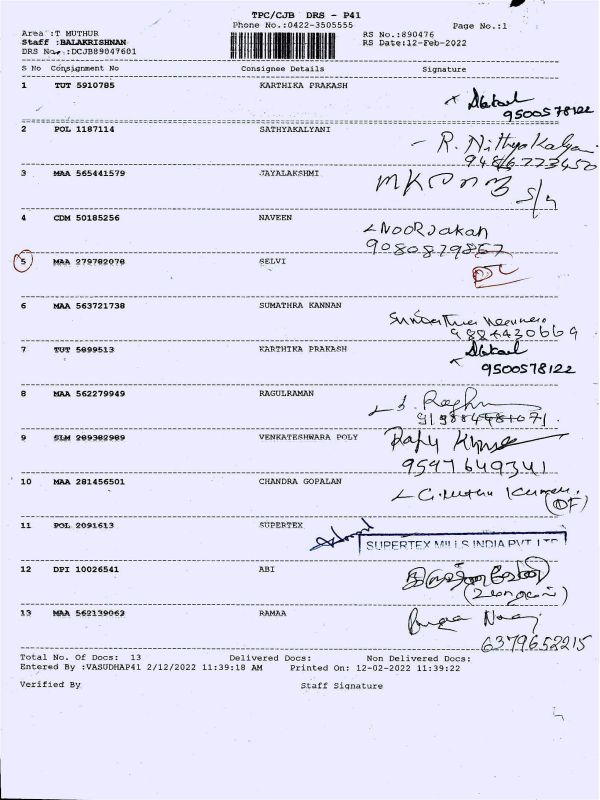 TPC/CJB DRS - P41
Phone No.:0422-3505555
Page No.:1
Area :T MUTHUR
RS No.:890476
Staff :BALAKRISHNAN
RS Date:12-Feb-2022
DRS No.:DCJB89047601
S No Consignment No Consignee Details Signature
1 TUT 5910785 KARTHIKA PRAKASH
9500578122
2 POL 1187114 SATHYAKALYANI
- R. Nithya Kalyani
3 MAA 565441579 JAYALAKSHMI
S/n
4 CDM 50185256 NAVEEN
NOORJAKAN
9080879867
5 MAA 279782078 SELVI
6 MAA 563721738 SUMATHRA KANNAN
9884430669
7 TUT 5899513 KARTHIKA PRAKASH
9500578122
8 MAA 562279949 RAGULRAMAN
9 SLM 289382989 VENKATESHWARA POLY
9597649341
10 MAA 281456501 CHANDRA GOPALAN
11 POL 2091613 SUPERTEX
SUPERTEX MILLS INDIA PVT LTD
12 DPI 10026541 ABI
13 MAA 562139063 RAMAA
6379652215
Total No. Of Docs: 13 Delivered Docs: Non Delivered Docs:
Entered By :VASUDHAP41 2/12/2022 11:39:18 AM Printed On: 12-02-2022 11:39:22
Verified By Staff Signature